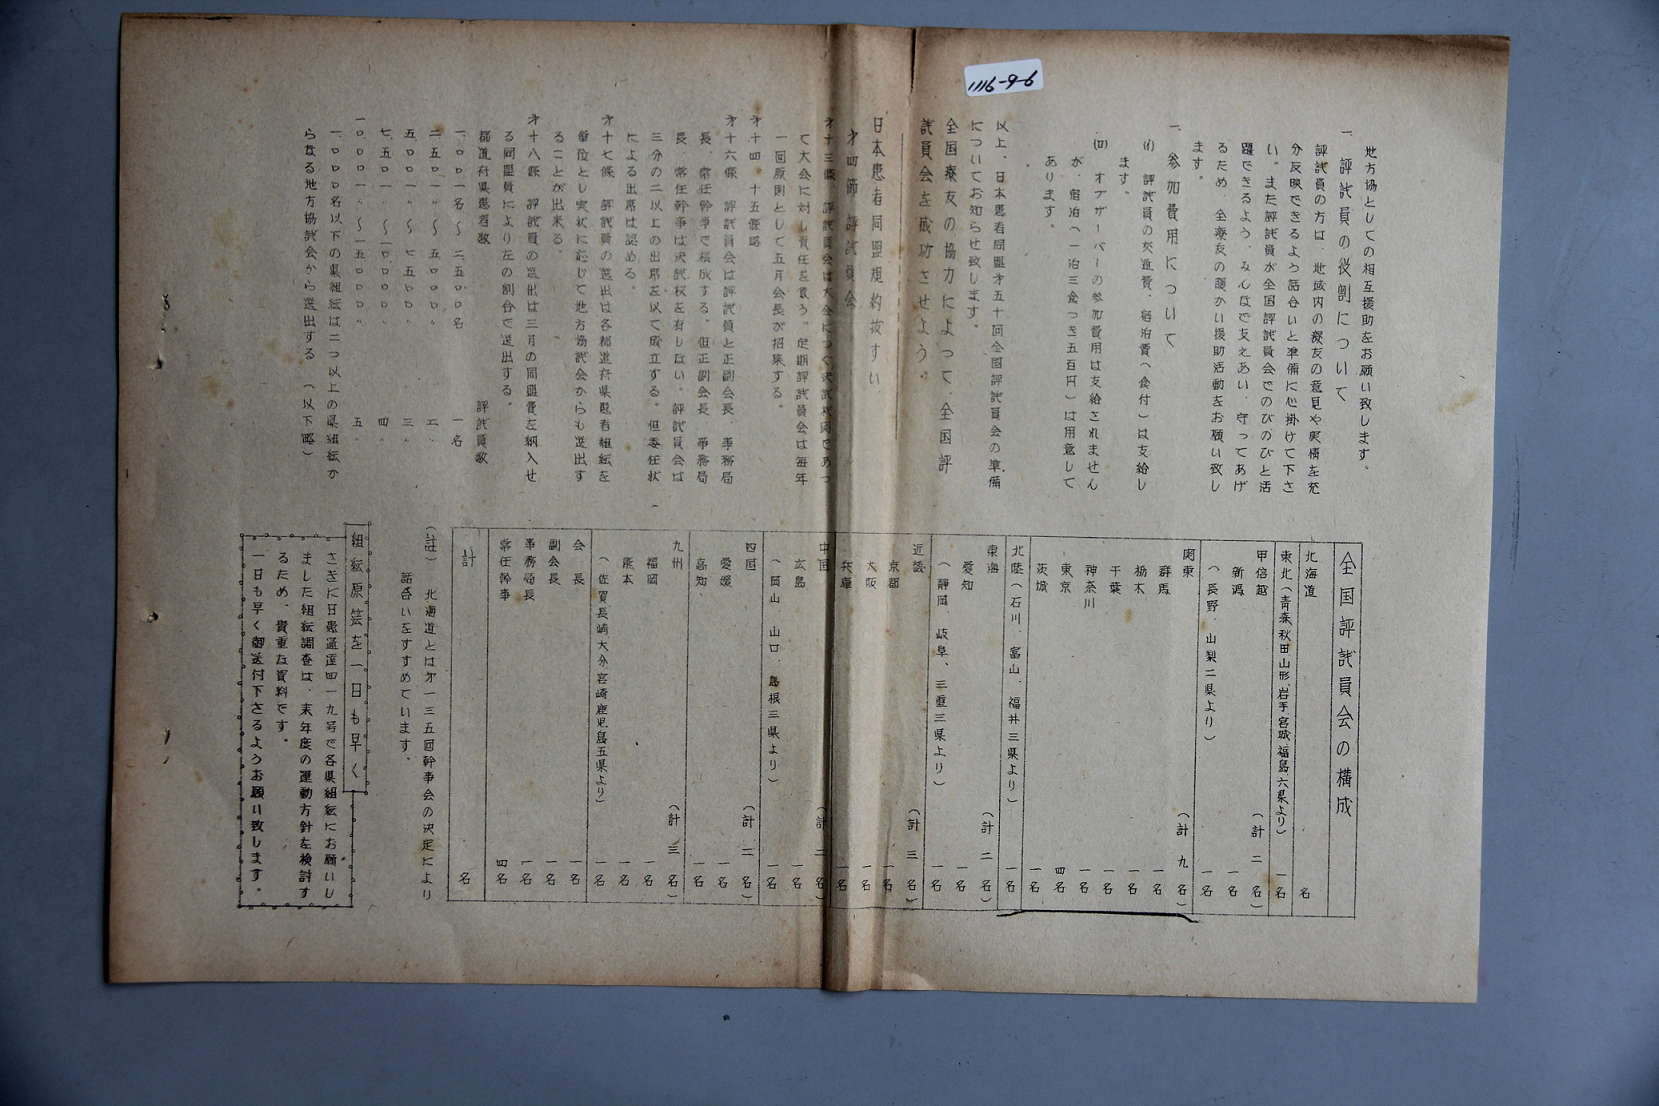 1116-9-6
地方協としての相互援助をお願い致します。
一、評議員の役割について
評議員の方は、地域内の療友の意見や実情を充
分反映できるよう話合いと準備に心掛けて下さ
い。また評議員が全国評議員会でのびのびと活
躍できるよう、みんなで支えあい、守ってあげ
るため、全療友の暖かい援助活動をお願い致し
ます。
一、参加費用について
(イ) 評議員の交通費、宿泊費(食付)は支給し
ます。
(ロ) オブザーバーの参加費用は支給されません
が、宿泊(一泊三食つき五百円)は用意して
あります。
以上、日本患者同盟才五十回全国評議員会の準備
についてお知らせ致します。
全国療友の協力によって、全国評
議員会を成功させよう。
日本患者同盟規約抜すい
才四節 評議員会
才十三條、評議員会は大会につぐ決議機関であっ
て大会に対し責任を負う。定期評議員会は毎年
一回原則として五月会長が招集する。
才十四、十五條略
才十六條、評議員会は評議員と正副会長、事務局
長、常任幹事で構成する。但正副会長、事務局
長、常任幹事は決議权を有しない。評議員会は
三分の二以上の出席を以て成立する。但委任状
による出席は認める。
才十七條 評議員の選出は各都道府県患者組織を
單位とし実状に応じて地方協議会からも選出す
ることが出来る。
才十八條 評議員の選出は三月の同盟費を納入せ
る同盟員により左の割合で選出する。
都道府県患者数 評議員数
一、〇〇一名～二、五〇〇名 一名
二、五〇一〃～五、〇〇〇〃 二〃
五、〇〇一〃～七、五〇〇〃 三〃
七、五〇一〃～一〇、〇〇〇〃 四〃
一〇、〇〇一〃～一五、〇〇〇〃 五〃
一、〇〇〇名以下の県組織は二つ以上の県組織か
らなる地方協議会から選出する (以下略)
全国評議員会の構成
北海道 名
東北(青森秋田山形、岩手宮城福島六県より) 一名
甲信越 (計 二名)
新潟 一名
(長野、山梨二県より) 一名
関東 (計 九名)
群馬 一名
栃木 一名
千葉 一名
神奈川 一名
東京 四名
茨城 一名
北陸(石川、富山、福井三県より) 一名
東海 (計 二名)
愛知 一名
(静岡 岐阜、三重三県より) 一名
近畿 (計 三名)
京都 一名
大阪 一名
兵庫 一名
中国 (計 二名)
広島 一名
(岡山 山口、島根三県より) 一名
四国 (計 二名)
愛媛 一名
高知 一名
九州 (計 三名)
福岡 一名
熊本 一名
(佐賀長崎大分宮崎鹿児島五県より) 一名
会長 一名
副会長 一名
事務局長 一名
常任幹事 四名
計 名
(註) 北海道とは才一三五回幹事会の決定により
話合いをすすめています。
組織原簿を一日も早く
さきに日患通達四一九号で各県組織にお願いし
ました組織調査は、来年度の運動方針を検討す
るため、貴重な資料です。
一日も早く御送付下さるようお願い致します。